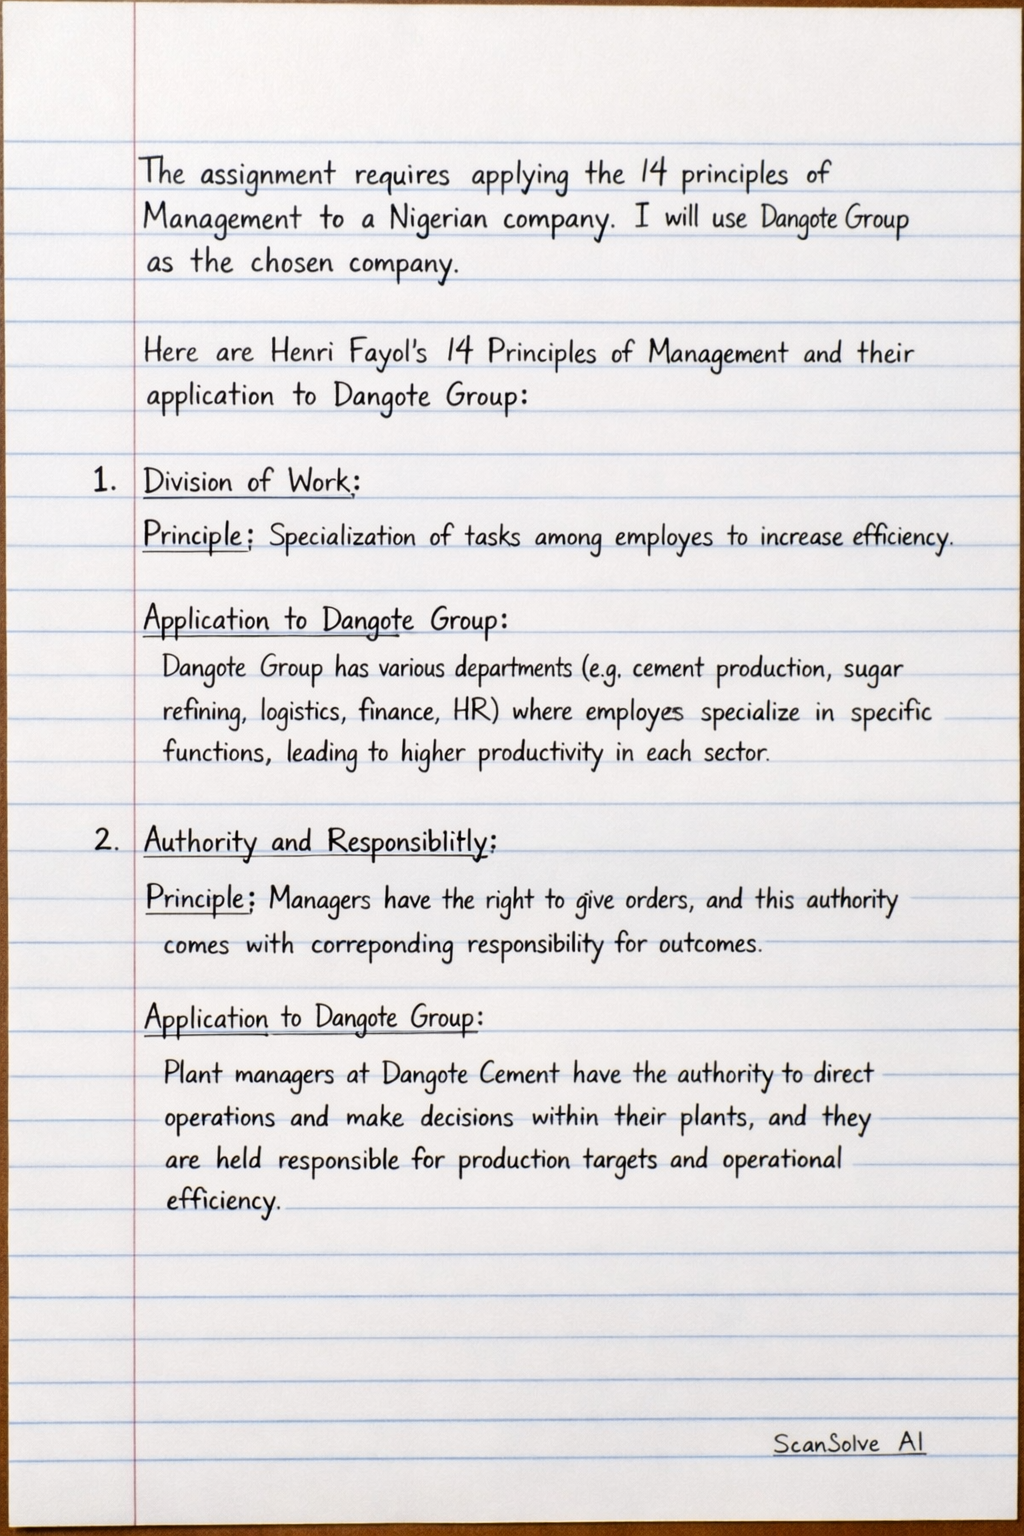 The assignment requires applying the 14 principles of
Management to a Nigerian company. I will use Dangote Group
as the chosen company.
Here are Henri Fayol's 14 Principles of Management and their
application to Dangote Group:
1. Division of Work:
Principle: Specialization of tasks among employes to increase efficiency.
Application to Dangote Group:
Dangote Group has various departments (e.g. cement production, sugar
refining, logistics, finance, HR) where employes specialize in specific
functions, leading to higher productivity in each sector.
2. Authority and Responsiblitly:
Principle: Managers have the right to give orders, and this authority
comes with correponding responsibility for outcomes.
Application to Dangote Group:
Plant managers at Dangote Cement have the authority to direct
operations and make decisions within their plants, and they
are held responsible for production targets and operational
efficiency.
ScanSolve AI